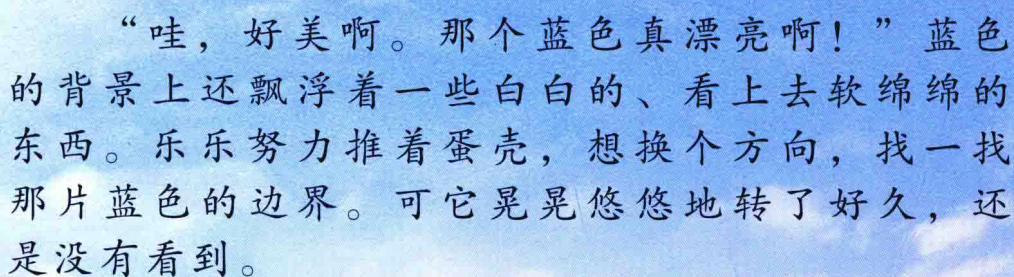 “哇，好美啊。那个蓝色真漂亮啊！”蓝色
的背景上还飘浮着一些白白的、看上去软绵绵的
东西。乐乐努力推着蛋壳，想换个方向，找一找
那片蓝色的边界。可它晃晃悠悠地转了好久，还
是没有看到。